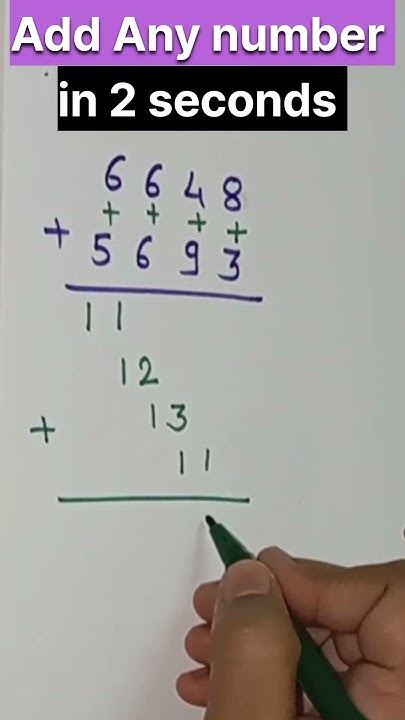 Add Any number
in 2 seconds
6 6 4 8
+ + + +
+ 5 6 9 3
11
12
13
+
11